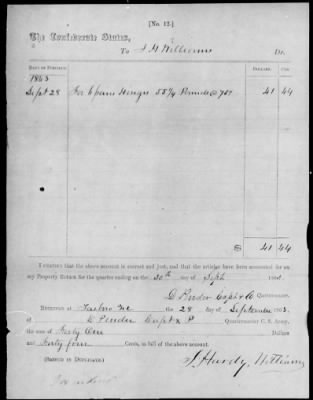 [No. 12.]
The Confederate States,
To J H Williams Dr.
DATE OF PURCHASE. DOLLARS. CTS.
1863
Sept 28 For 6 pairs Hinges 55 1/4 Pounds @ 75¢ 41 44
$ 41 44
I CERTIFY that the above account is correct and just, and that the articles have been accounted for on
my Property Return for the quarter ending on the 30th day of Sept 186
D Pender Capt & Quartermaster.
RECEIVED at Tarboro N C the 28 day of September 1863,
of D Pender Capt & Quartermaster C. S. Army,
the sum of Forty One Dollars
and Forty four Cents, in full of the above account.
(SIGNED IN DUPLICATE) J. Hardy Williams